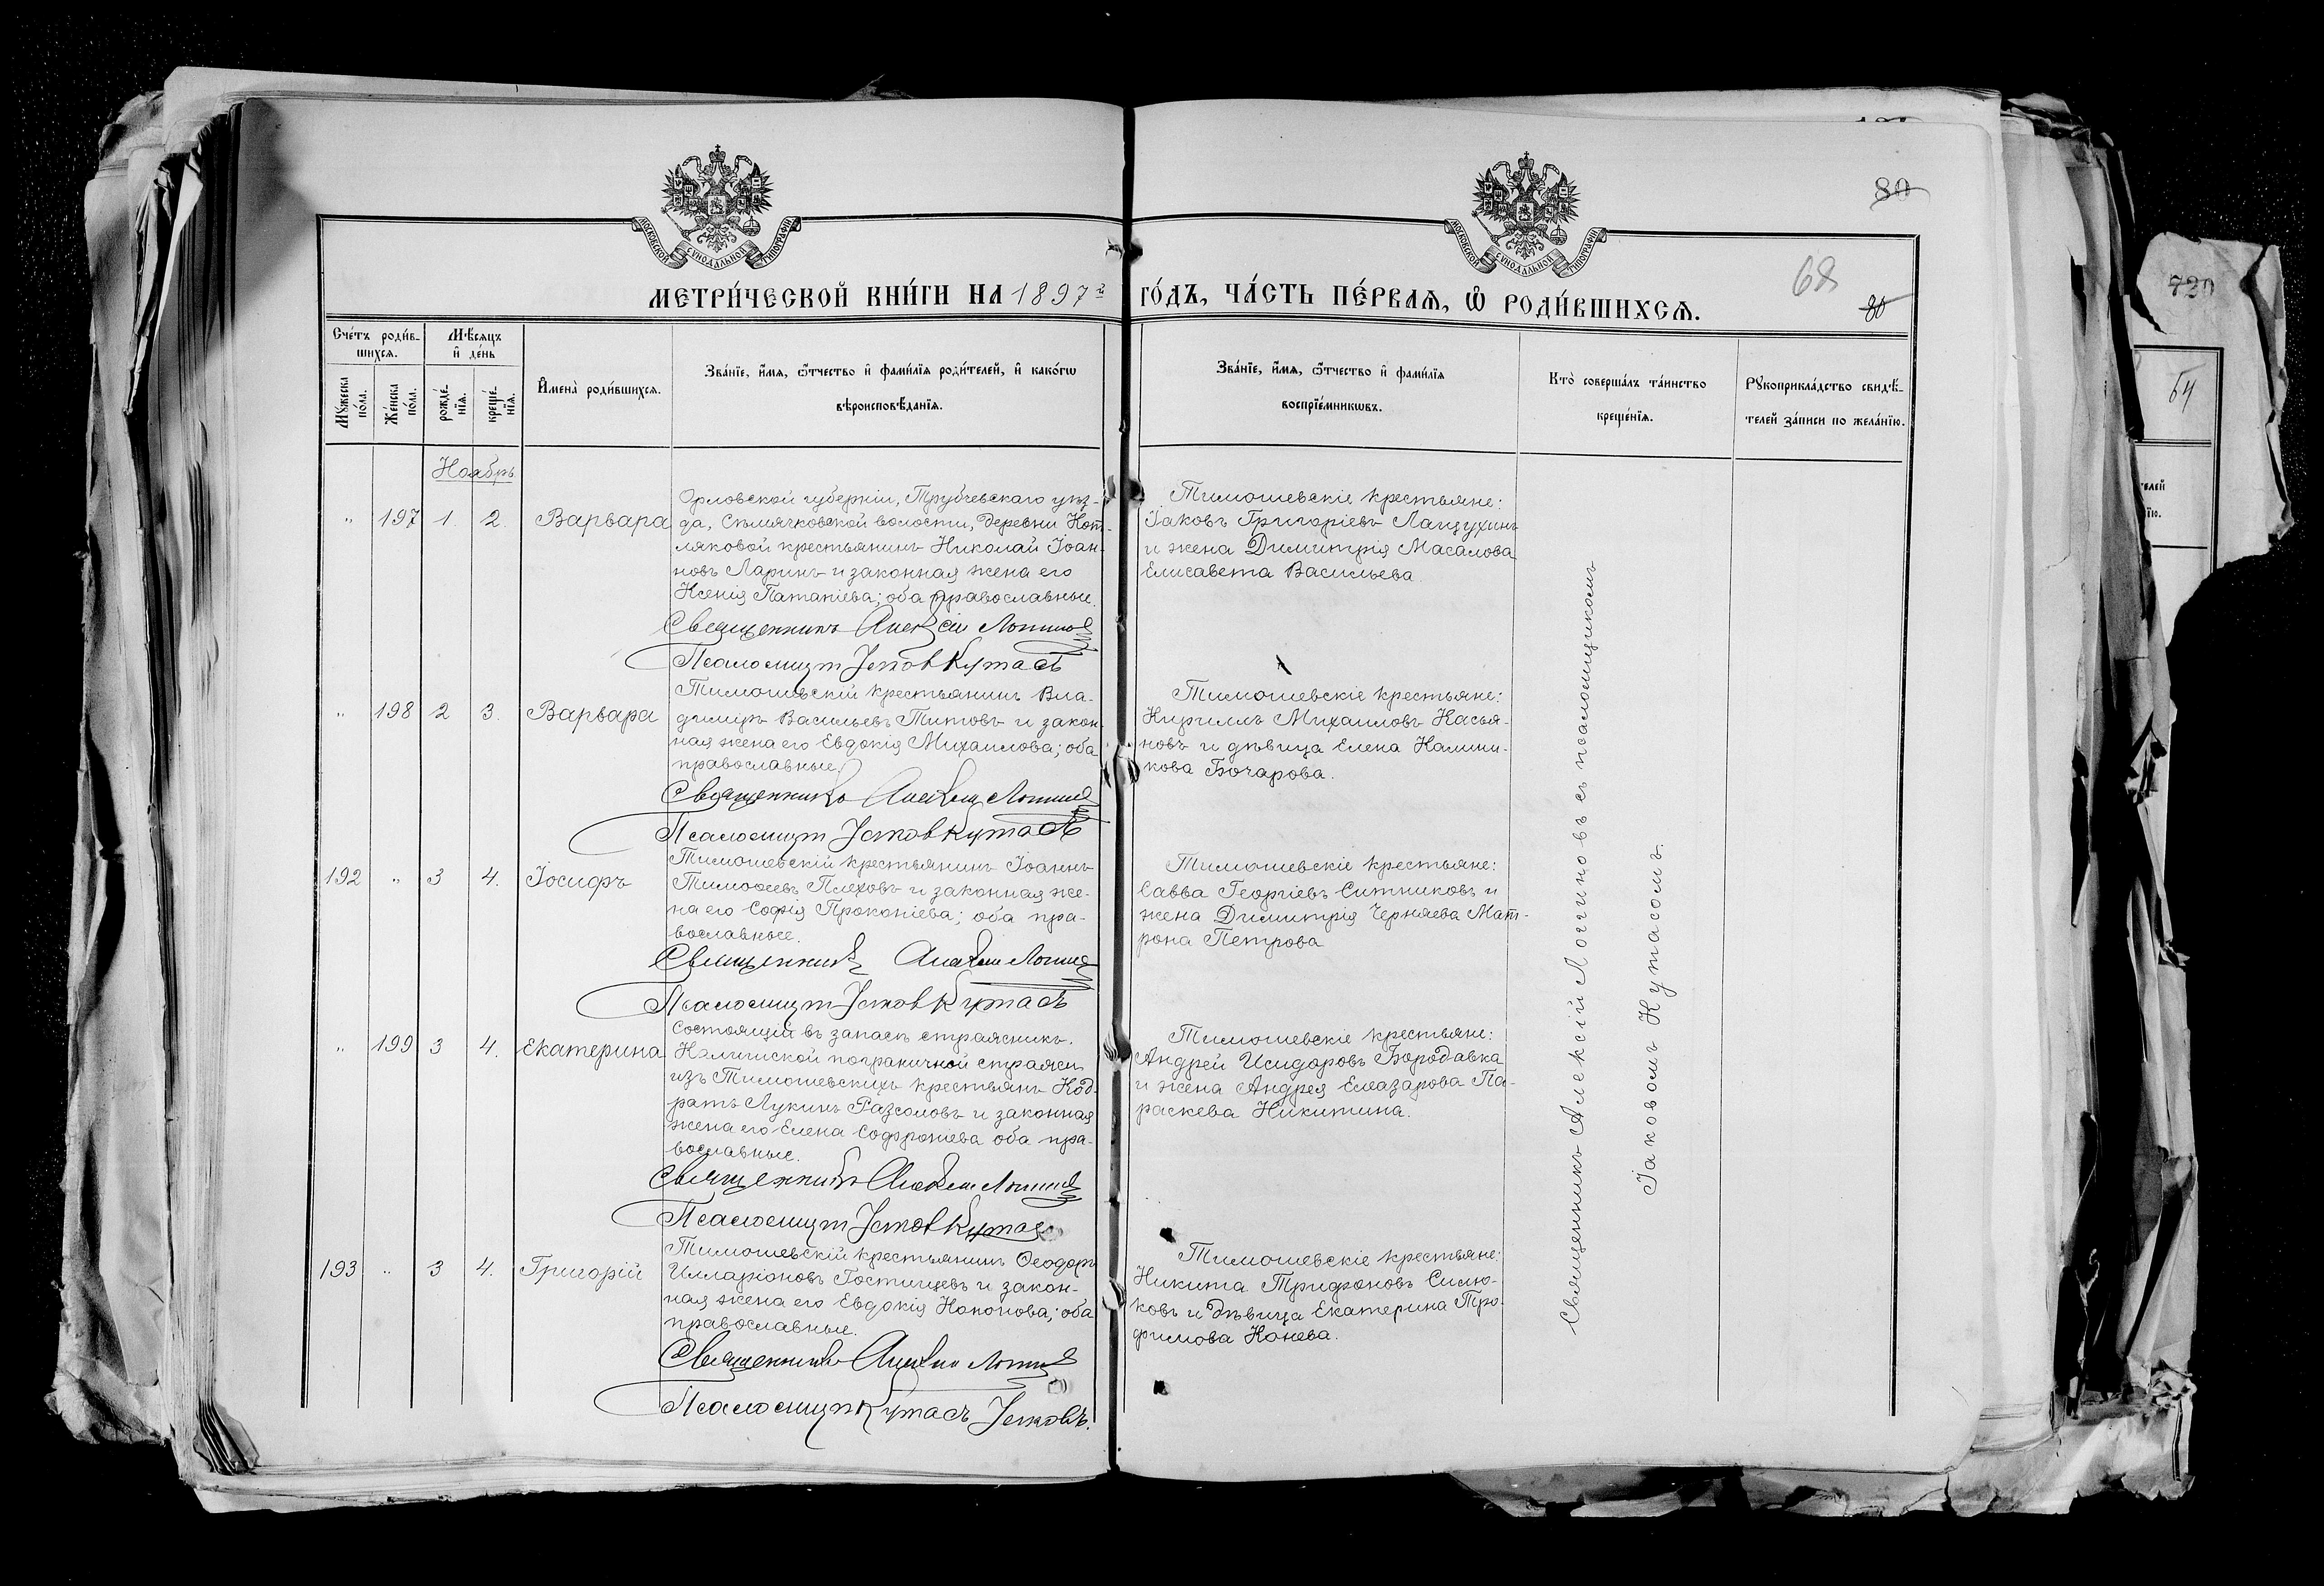 МОСКОВСКОЙ СѴНОДАЛЬНОЙ ТИПОГРАФІИ
МОСКОВСКОЙ СѴНОДАЛЬНОЙ ТИПОГРАФІИ
80
МЕТРИ́ЧЕСКОЙ КНИ́ГИ НА 1897й ГО́ДЪ, ЧА́СТЬ ПЕ́РВАѦ, Ѡ РОДИ́ВШИХСѦ.
68
80
Сче́тъ роди́в-
шихсѧ.
Мѣ́сѧцъ
и҆ де́нь
Мꙋ́жеска
по́ла.
Же́нска
по́ла.
рожде́-
нїѧ.
креще́-
нїѧ.
И҆мена̀ роди́вшихсѧ.
Зва́нїе, и҆́мѧ, ѻ҆́тчество и҆ фамі́лїѧ роди́телей, и҆ како́гѡ
вѣроисповѣ́данїѧ.
Зва́нїе, и҆́мѧ, ѻ҆́тчество и҆ фамі́лїѧ
воспрїе́мникѡвъ.
Кто̀ соверша́лъ та́инство
креще́нїѧ.
Рꙋкоприкла́дство свидѣ́-
телей за́писи по жела́нїю.
Ноябрь
" 197 1. 2. Варвара
Орловской губерніи, Трубчевскаго уѣз-
да, Сѣлячковской волости, деревни Кот-
ляковой крестьянинъ Николай Іоан-
новъ Ларинъ и законная жена его
Ксенія Патапіева; оба православные.
Священникъ Алексій Логинов
Псаломщик Іаков Кутасъ
Тимошевскіе крестьяне:
Іаковъ Григоріевъ Лащухинъ
и жена Димитрія Масалова
Елисавета Васильева.
" 198 2 3. Варвара
Тимошевскій крестьянинъ Вла-
димиръ Васильевъ Титовъ и закон-
ная жена его Евдокія Михаилова; оба
православные.
Священникъ Алексій Логинов
Псаломщик Іаков Кутасъ
Тимошевскіе крестьяне:
Кириллъ Михаиловъ Касья-
новъ и дѣвица Елена Калини-
кова Бочарова.
192 " 3 4. Іосифъ
Тимошевскій крестьянинъ Іоаннъ
Тимоѳеевъ Плеховъ и законная же-
на его Софія Прокопіева; оба пра-
вославные.
Священникъ Алексій Логинов
Псаломщик Іаков Кутасъ
Тимошевскіе крестьяне:
Савва Георгіевъ Ситниковъ и
жена Димитрія Черняева Мат-
рона Петрова
" 199 3 4. Екатерина
Состоящій въ запасѣ стражникъ
Калишской пограничной стражи
изъ Тимошевскихъ крестьянъ Код-
ратъ Лукинъ Разсоловъ и законная
жена его Елена Софроніева оба пра-
вославные.
Священникъ Алексій Логинов
Псаломщик Іаков Кутасъ
Тимошевскіе крестьяне:
Андрей Исидоровъ Бородавка
и жена Андрея Елеазарова Па-
раскева Никитина.
193 " 3 4. Григорій
Тимошевскій крестьянинъ Ѳеодоръ
Илларіоновъ Гостищевъ и закон-
ная жена его Евдокія Кононова; оба
православные.
Священникъ Алексій Логинов
Псаломщик Кутасъ Іаковъ.
Тимошевскіе крестьяне:
Никита Трифоновъ Силю-
ковъ и дѣвица Екатерина Тро-
фимова Конева.
Священникъ Алексій Логиновъ съ псаломщикомъ
Іаковомъ Кутасомъ.
720
телей
їю.